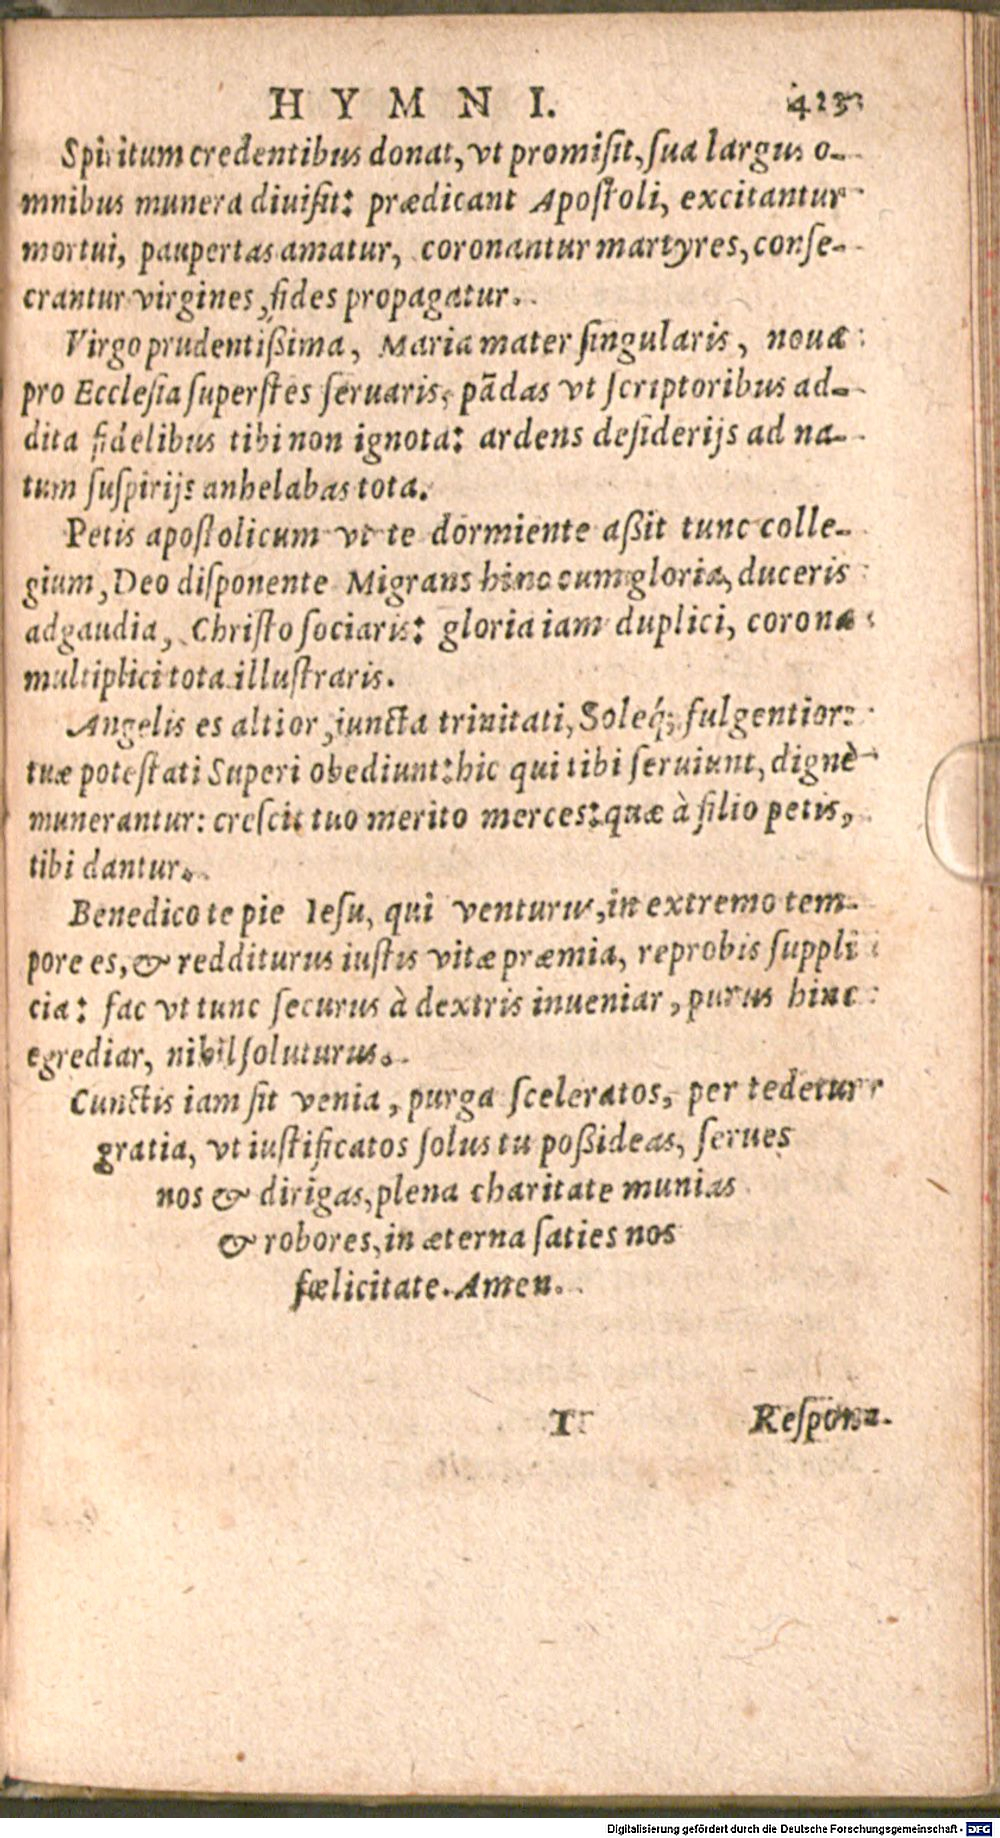 HYMNI.
Spiritum credentibus donat, vt promiſit, ſua largus o-
mnibus munera diuiſit: prædicant Apoſtoli, excitantur
mortui, paupertas amatur, coronantur martyres, conſe-
crantur virgines, fides propagatur.
Virgo prudentißima, Maria mater ſingularis, nouæ
pro Eccleſia ſuperſtes ſeruaris, pādas vt ſcriptoribus ad-
dita fidelibus tibi non ignota: ardens deſiderijs ad na-
tum ſuſpirijs anhelabas tota.
Petis apoſtolicum vt te dormiente aßit tunc colle-
gium, Deo diſponente Migrans hinc cum gloria, duceris
ad gaudia, Chriſto ſociaris: gloria iam duplici, corona
multiplici tota illuſtraris.
Angelis es altior, iuncta trinitati, Soleq́; fulgentior:
tuæ poteſtati Superi obediunt: hic qui tibi ſeruiunt, dignè
munerantur: creſcit tuo merito merces: quæ à filio petis,
tibi dantur.
Benedico te pie Ieſu, qui venturus, in extremo tem-
pore es, & redditurus iuſtis vitæ præmia, reprobis ſuppli
cia: fac vt tunc ſecurus à dextris inueniar, purus hinc
egrediar, nihil ſoluturus.
Cunctis iam ſit venia, purga ſceleratos, per te detur
gratia, vt iuſtificatos ſolus tu poßideas, ſerues
nos & dirigas, plena charitate munias
& robores, in æterna ſaties nos
fœlicitate. Amen.
Digitalisierung gefördert durch die Deutsche Forschungsgemeinschaft - DFG